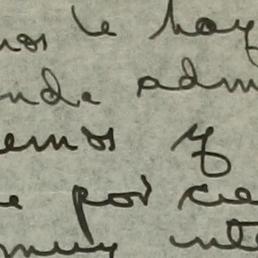 nos le hay
nde adm
emos y
e por cie
muy inte